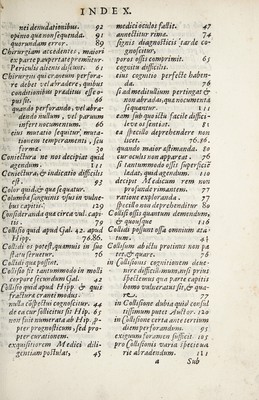 INDEX.
nei denudationibus. 92
opinio quæ non sequenda. 91
quorundam error. 89
Chirurgiam accedentes, maiori
ex parte par partate præmittur.
Periculis alienis discunt. 61
Chirurgi qui craneum perfora-
re debet vel abradere, quibus
conditionibus præditus esse o-
pussit. 66
quando perforando, vel abra-
dendo nullum, vel paruum
infert nocumentum. 66
eius mutatio sequitur muta-
tionem temperamenti, seu
formæ. 30
Coniectura ne nos decipiat quid
agendum. 111
Coniectura, & indicatio difficilis
est. 92
Color quid, & qua sequatur.
Columba sanguinis vsus in vulne-
re capitis. 129
Consideranda quæ circa vul. capi-
tis. 79
Collisio quid apud Gal. 42. apud
Hipp. 76.86.
Collidi os potest, quamuis in suo
statu seruetur. 76
Collidi que possint.
Collisio fit tantummodo in molli
corpore secundum Gal. 42
Collisio quid apud Hipp. & quis
fractura cranti modus
nulla cuspectui cognoscitur. 44
de ea cur sollicitus sit Hipp. 65
non fuit numerata ab Hip. p-
pter prognosticum, sed pro-
pter curationem.
exquisitorem Medici dili-
gentiam postulat, 45
medici oculos fallit. 47
annectitur rima. 74
signis diagnosticis tarde co-
gnoscitur,
poros ossis comprimit. 65
cognitu difficilis.
eius cognitio perfecte haben-
da. 76
si ad meditullium pertingat &
non abradas, qua nocumenta
sequuntur. 81
eam sub quo ictu facile diffici-
le ve os sentiat. 86
ea specillo deprehendere non
licet. 76.86.
quando maior æstimanda. 80
cur oculis non appareat. 76
si tantummodo ossis superficie
ladat, quid agendum. 120
decipit Medicum rem non
profunde rimantem. 77
ratione exploranda. 77
specillo non deprehenditur 80
Collisi ossis quantum demendum,
& quousque 116
Collidi possunt ossa omnium ata-
tum. 43
Collisum abictu protinus non pa
tet, & quare. 76
in collisionis cognitionem deue-
nire difficile. num, nisi prius
spectemus qua parte capitis
homo vulneratus sit, & qua-
re. 77
in Collisione dubia quid consul
tissimum putet Author. 120
in Collisione certa ante tertium
diem perforandum. 95
exquum foramen sufficit. 105
pro Collisionis varia specie va
rie abradendum. 121
a Sub